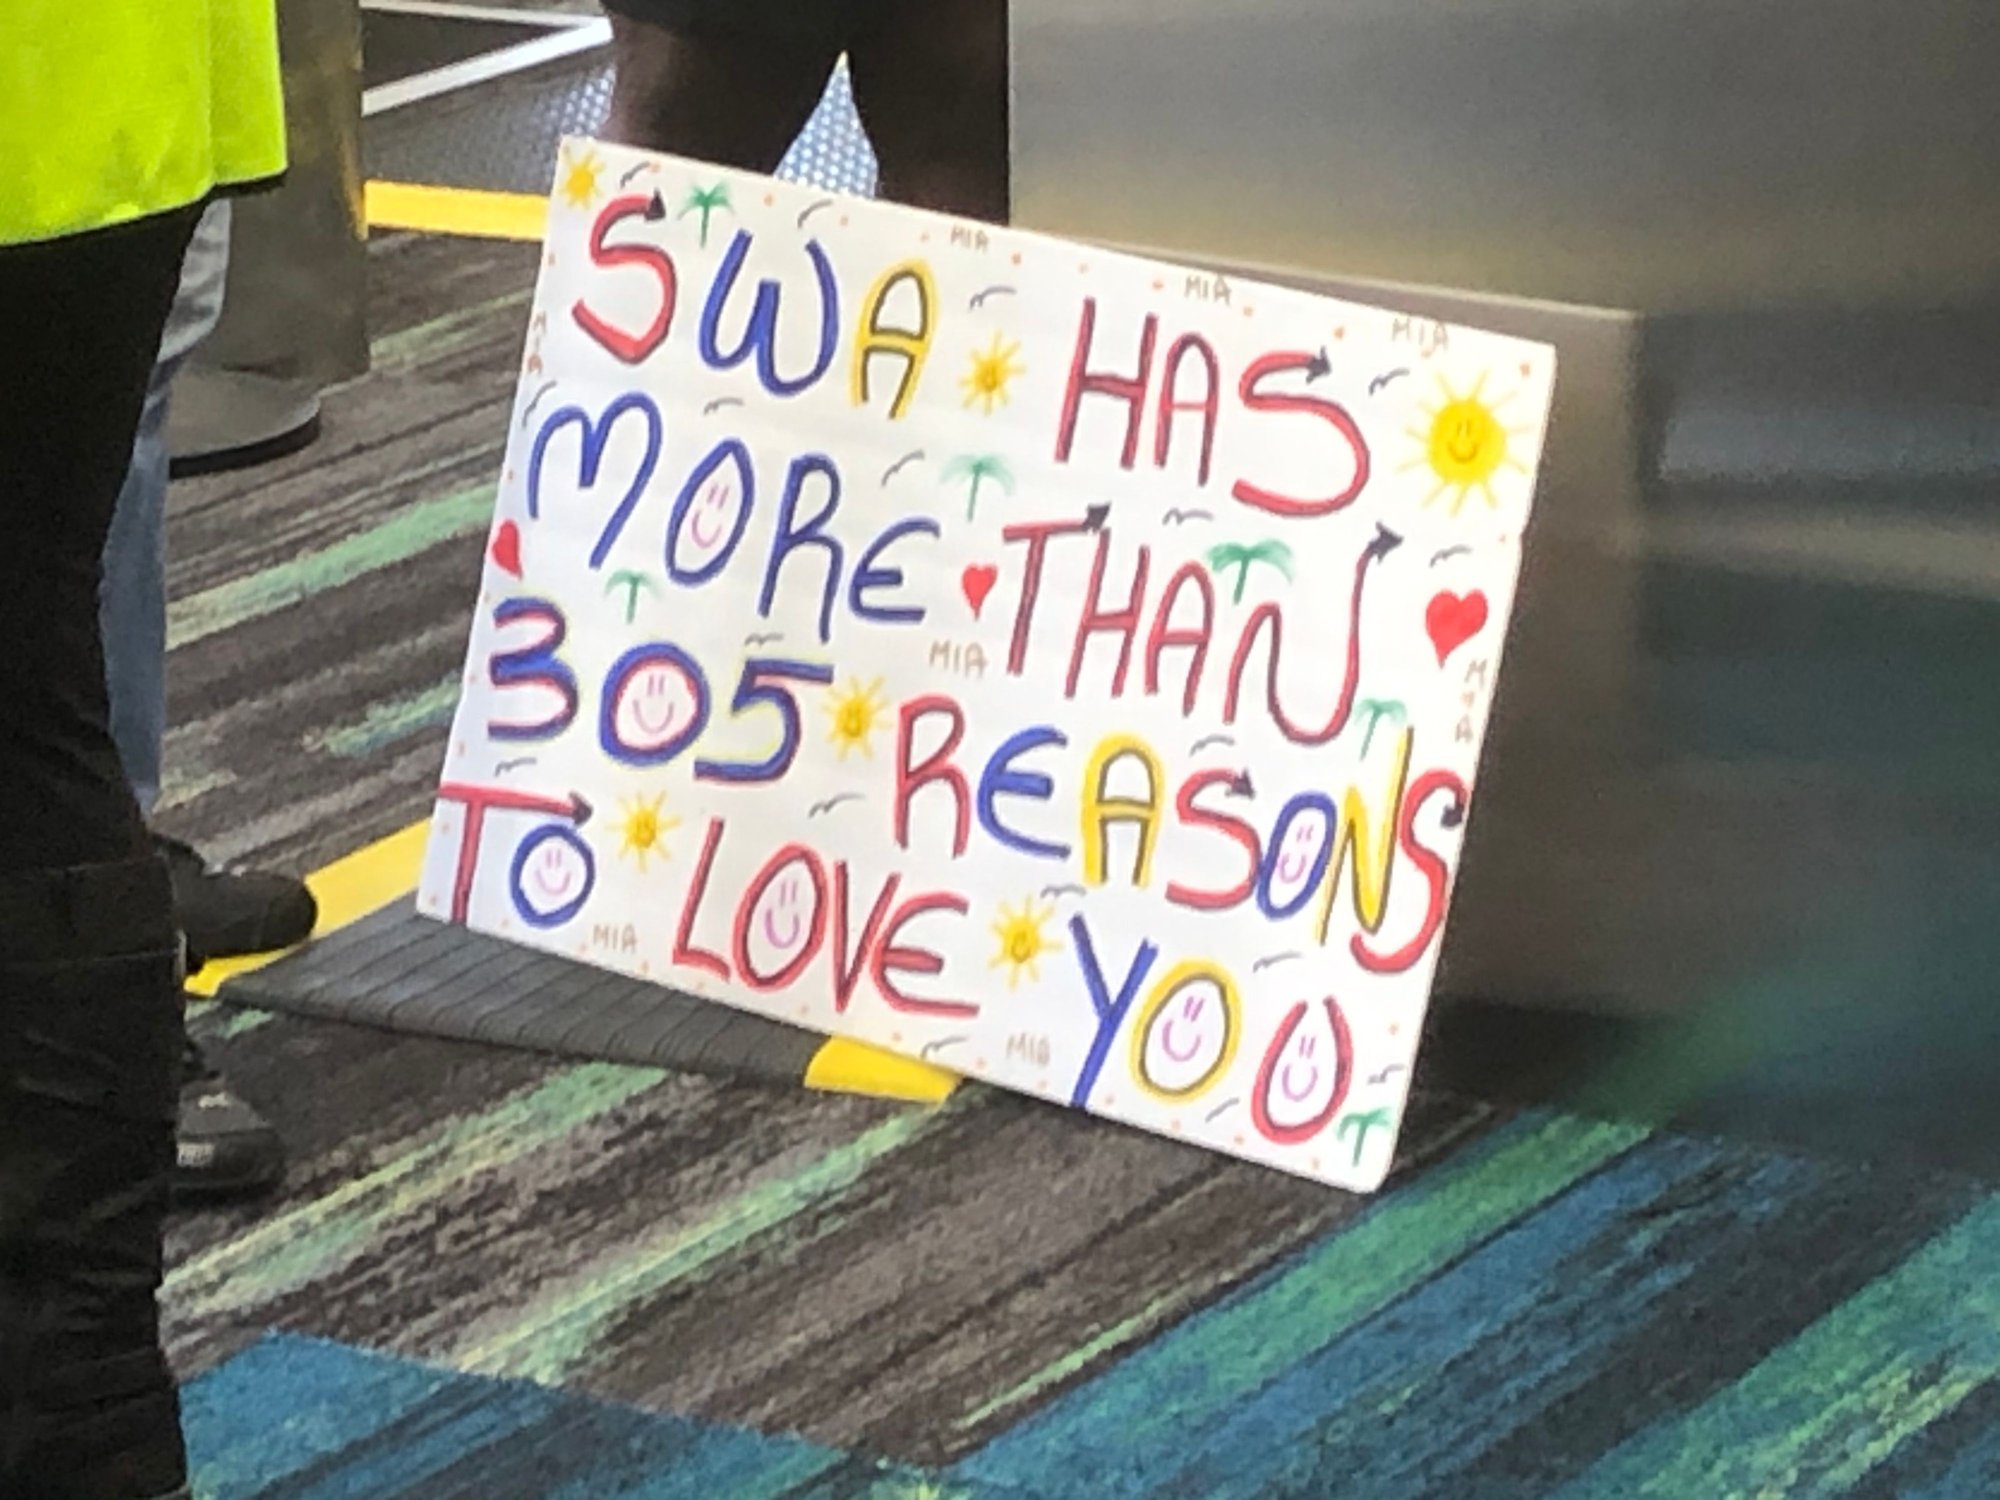 MIA
MIA
MIA
SWA HAS
MIA
MORE THAN
MIA
MIA
305 REASONS
TO LOVE YOU
MIA
MIA